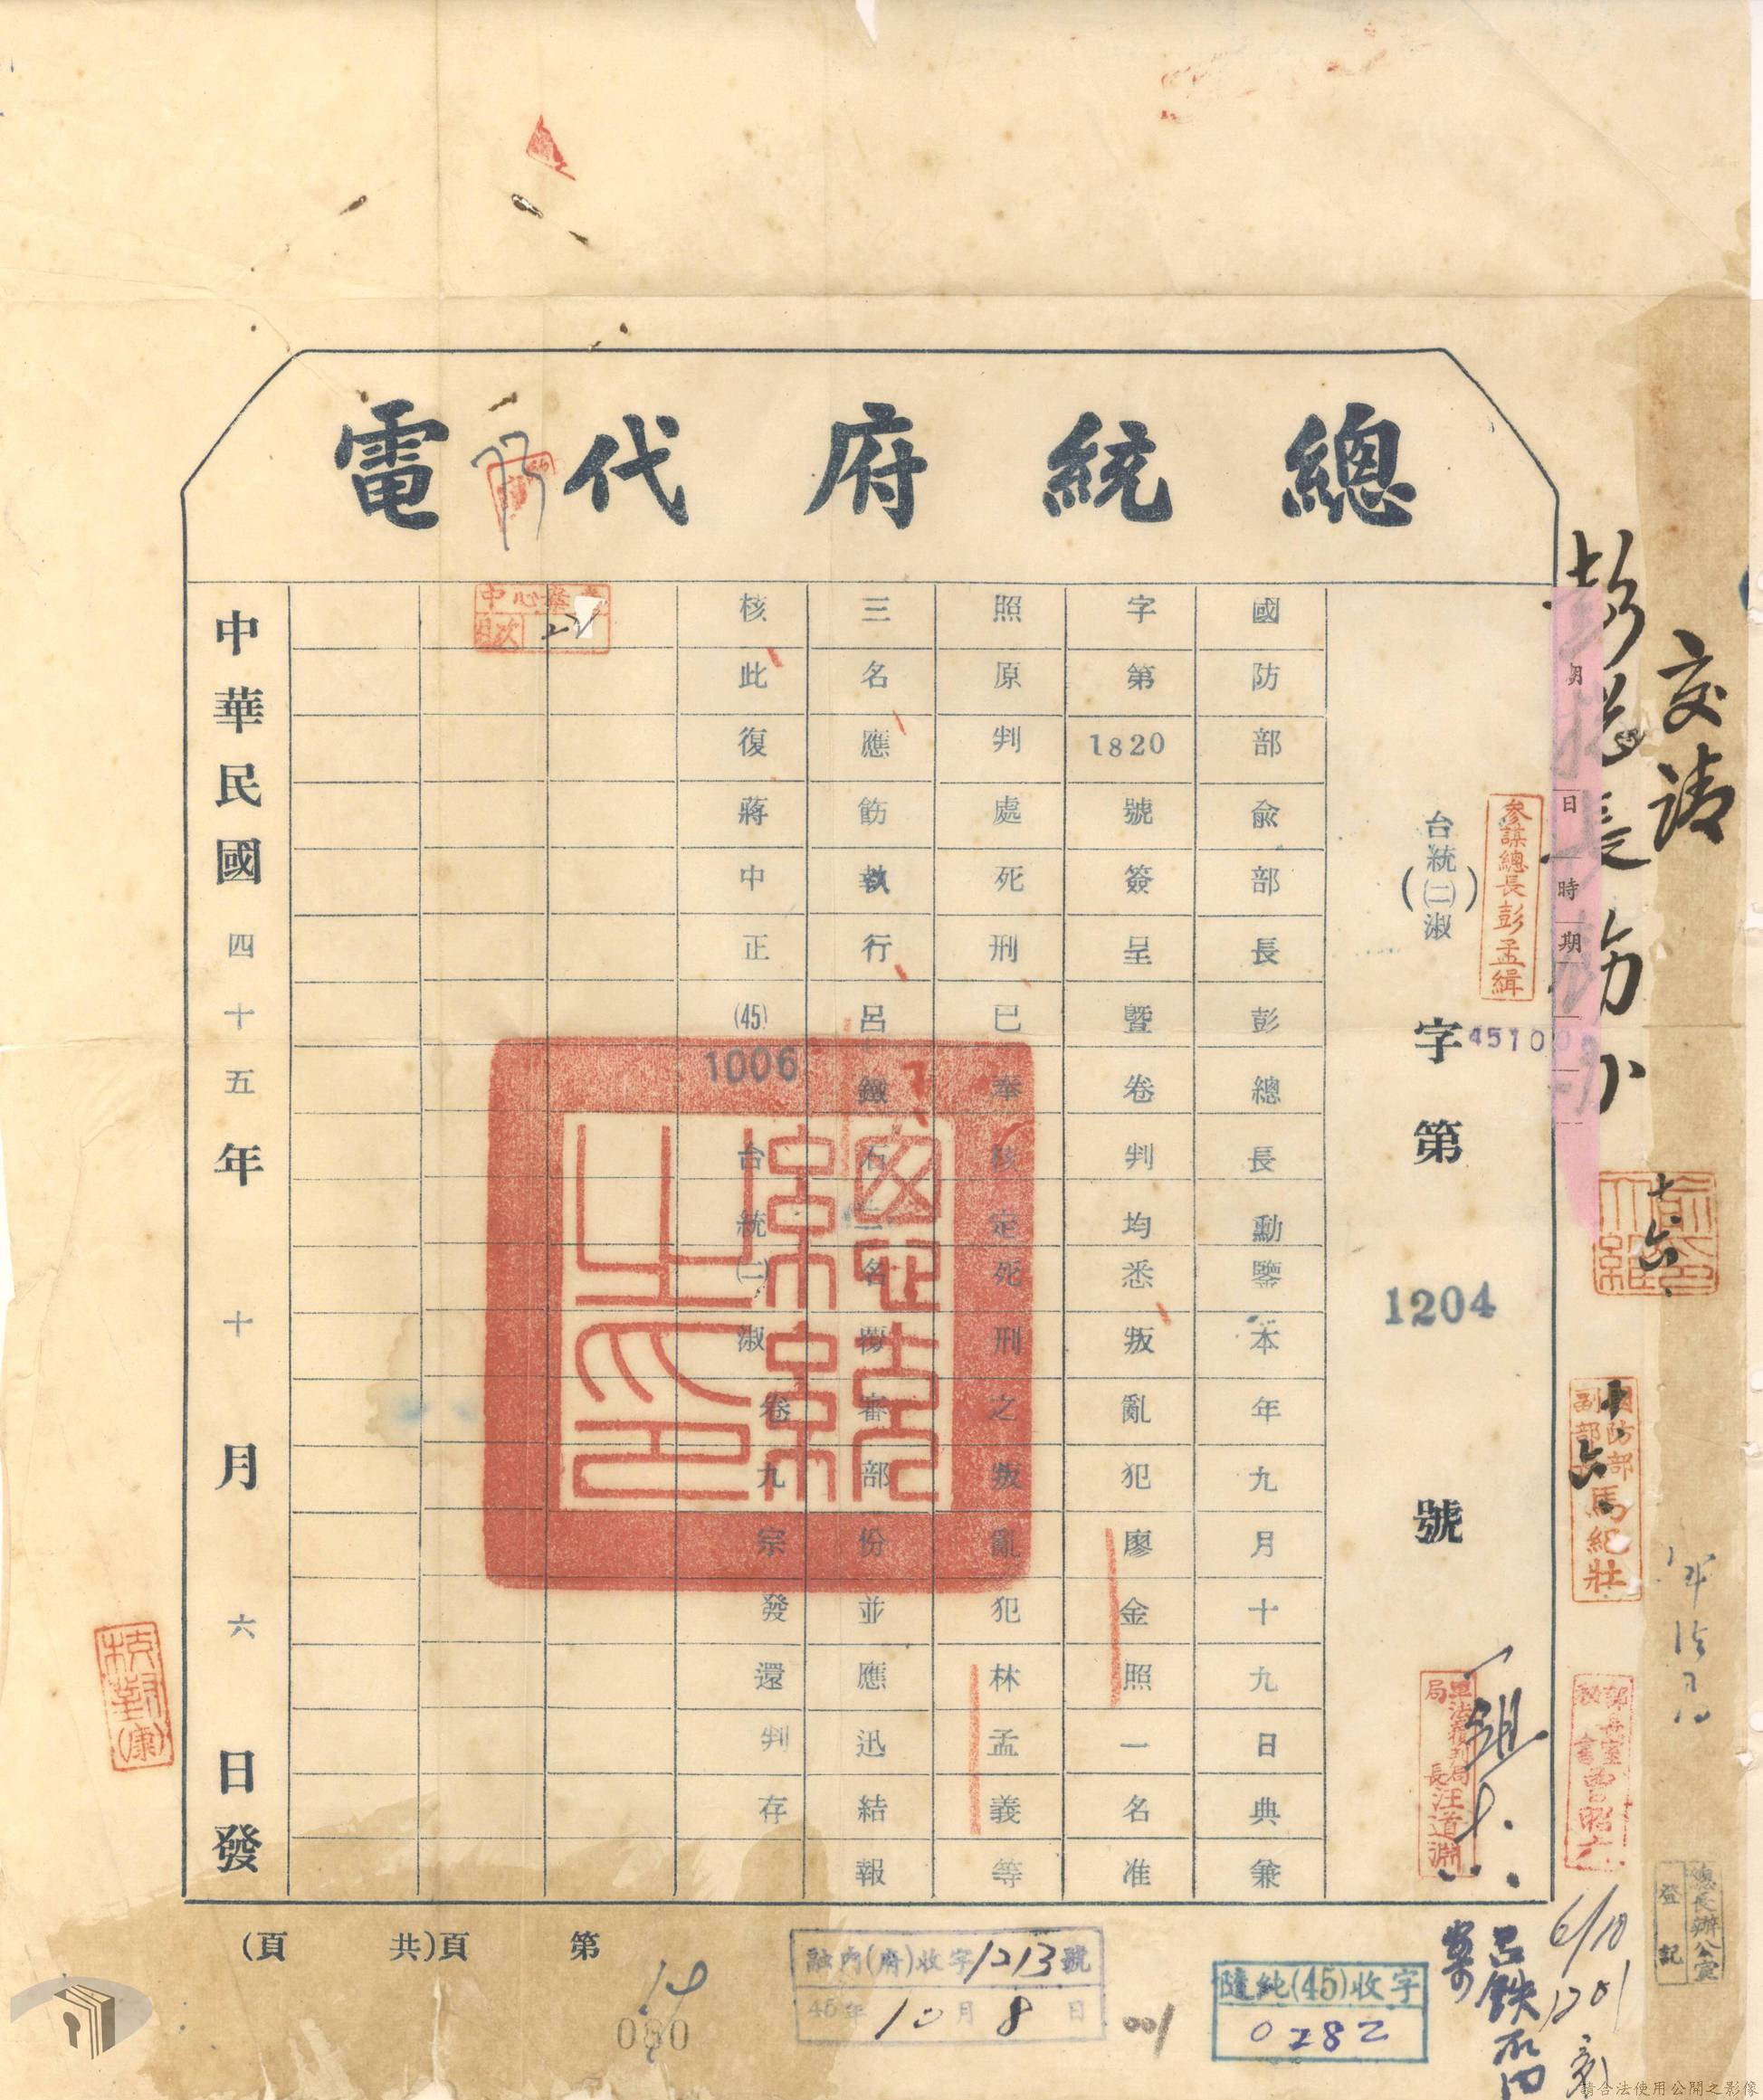 總統府代電
交請
彭總長
台統㈡淑
字第1204號
國防部俞部長彭總長勳鑒本年九月十九日典兼
字第1820號簽呈暨卷判均悉叛亂犯廖金照一名准
照原判處死刑已奉核定死刑之叛亂犯林孟義等
三名應飭執行呂鐵石一名覆審部份並應迅結報
核此復蔣中正(45)1006台統㈡淑卷九宗發還判存
中華民國四十五年十月六日發
參謀總長彭孟緝
月日時期
十六
國防部副部長馬紀壯
十六
軍法覆判局局長汪道淵
總長辦公室登記
6/10
1201
呂鉄石
第 頁(共 頁)
19
080
融內(府)收字1213號
45年10月8日
001
隨純(45)收字
0282
請合法使用公開之影像